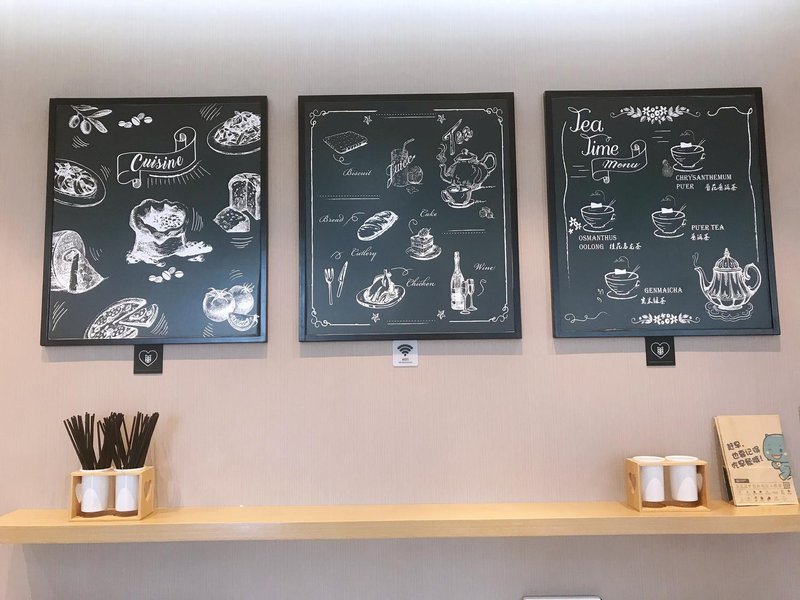 Cuisine
Biscuit
Juice
Tea
Bread
Cake
Cutlery
Chicken
Wine
Tea
Time
Menu
CHRYSANTHEMUM
PU'ER 菊花普洱茶
OSMANTHUS
OOLONG 桂花乌龙茶
PU'ER TEA
普洱茶
GENMAICHA
玄米绿茶
赶早,
也要记得
吃早餐哦!